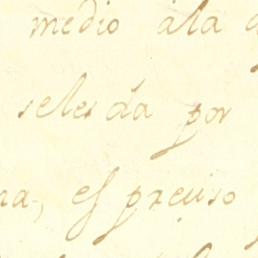 medio àla
seles da por
na, es preciso